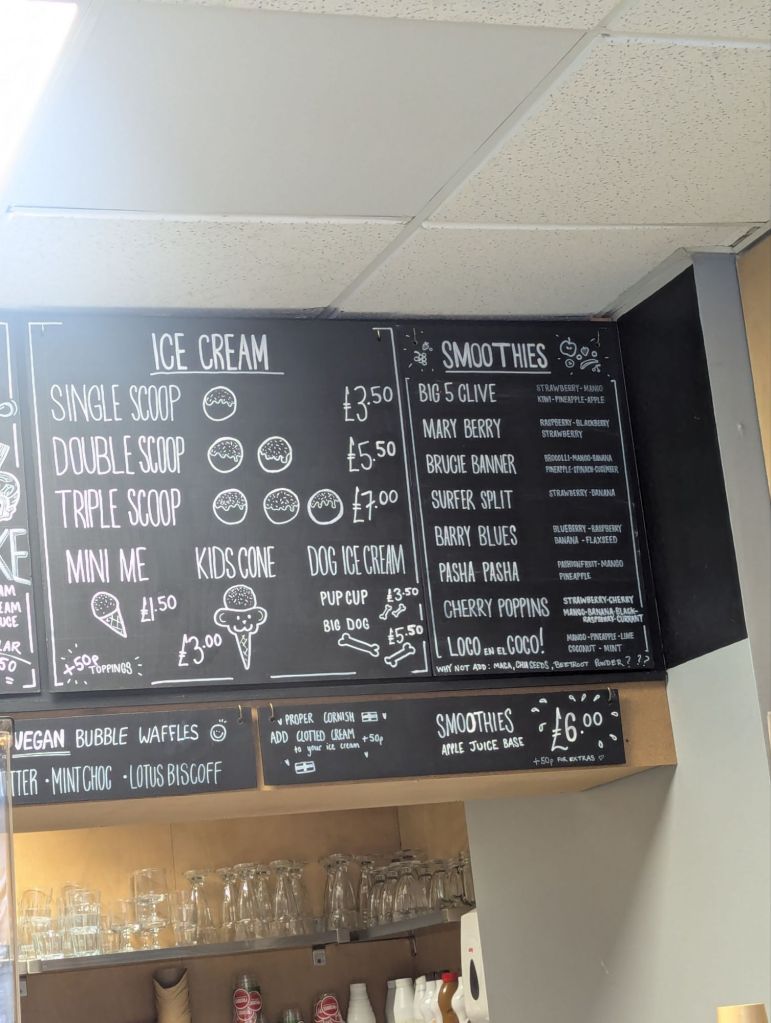 ICE CREAM
SINGLE SCOOP £3.50
DOUBLE SCOOP £5.50
TRIPLE SCOOP £7.00
MINI ME
£1.50
KIDS CONE
£3.00
DOG ICE CREAM
PUP CUP £3.50
BIG DOG £5.50
+50p TOPPINGS
SMOOTHIES
BIG 5 CLIVE
STRAWBERRY-MANGO
KIWI-PINEAPPLE-APPLE
MARY BERRY
RASPBERRY-BLACKBERRY
STRAWBERRY
BRUCIE BANNER
BROCOLLI-MANGO-BANANA
PINEAPPLE-SPINACH-CUCUMBER
SURFER SPLIT
STRAWBERRY-BANANA
BARRY BLUES
BLUEBERRY-RASPBERRY
BANANA-FLAXSEED
PASHA PASHA
PASHIONFRUIT-MANGO
PINEAPPLE
CHERRY POPPINS
STRAWBERRY-CHERRY
MANGO-BANANA-BLACK-
RASPBERRY-CURRANT
LOCO EN EL COCO!
MANGO-PINEAPPLE-LIME
COCONUT-MINT
WHY NOT ADD: MACA, CHIA SEEDS, BEETROOT POWDER???
VEGAN BUBBLE WAFFLES
TTER • MINT CHOC • LOTUS BISCOFF
PROPER CORNISH
ADD CLOTTED CREAM +50p
to your ice cream
SMOOTHIES
APPLE JUICE BASE
£6.00
+50p FOR EXTRAS
KE
AM
EAM
UCE
LAR
50